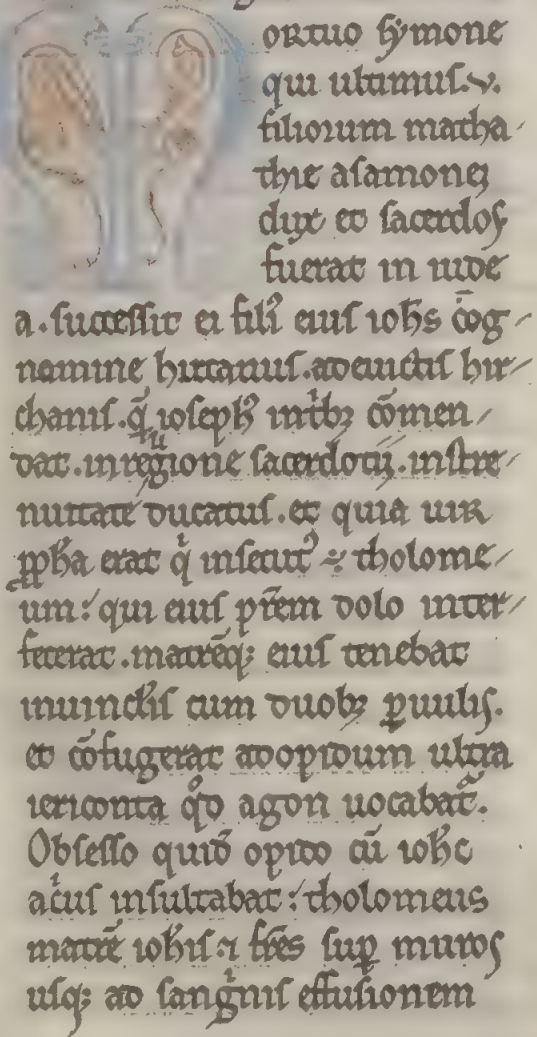 Mortuo symone
qui ultimus .v.
filiorum matha
thie asamonei
dux et sacerdos
fuerat in iude
a. successit ei fili᷒ eius ioh̄s cōg
nomine hircanus. a deuictis hir
chanis. q̄ ioseph᷒ in trib; cōmen
dat. in regīone sacerdotii. in stre
nuitate ducatus. et quia uir
ꝓph̄a erat qͥ insecut᷒ ÷ tholome
um: qui eius pr̄em dolo inter
fecerat. matrēq; eius tenebat
in uinclis cum duob; ꝑuulis.
et cōfugerat ad opidum ultra
iericonta qͦd agon uocabat᷑.
Obsesso quid̄ opido cū ioh̄s
acͥus insultabat: tholomeus
matrē ioh̄is ⁊ fr̄es sup̱ muros
usq; ad sangͥnis effusionem